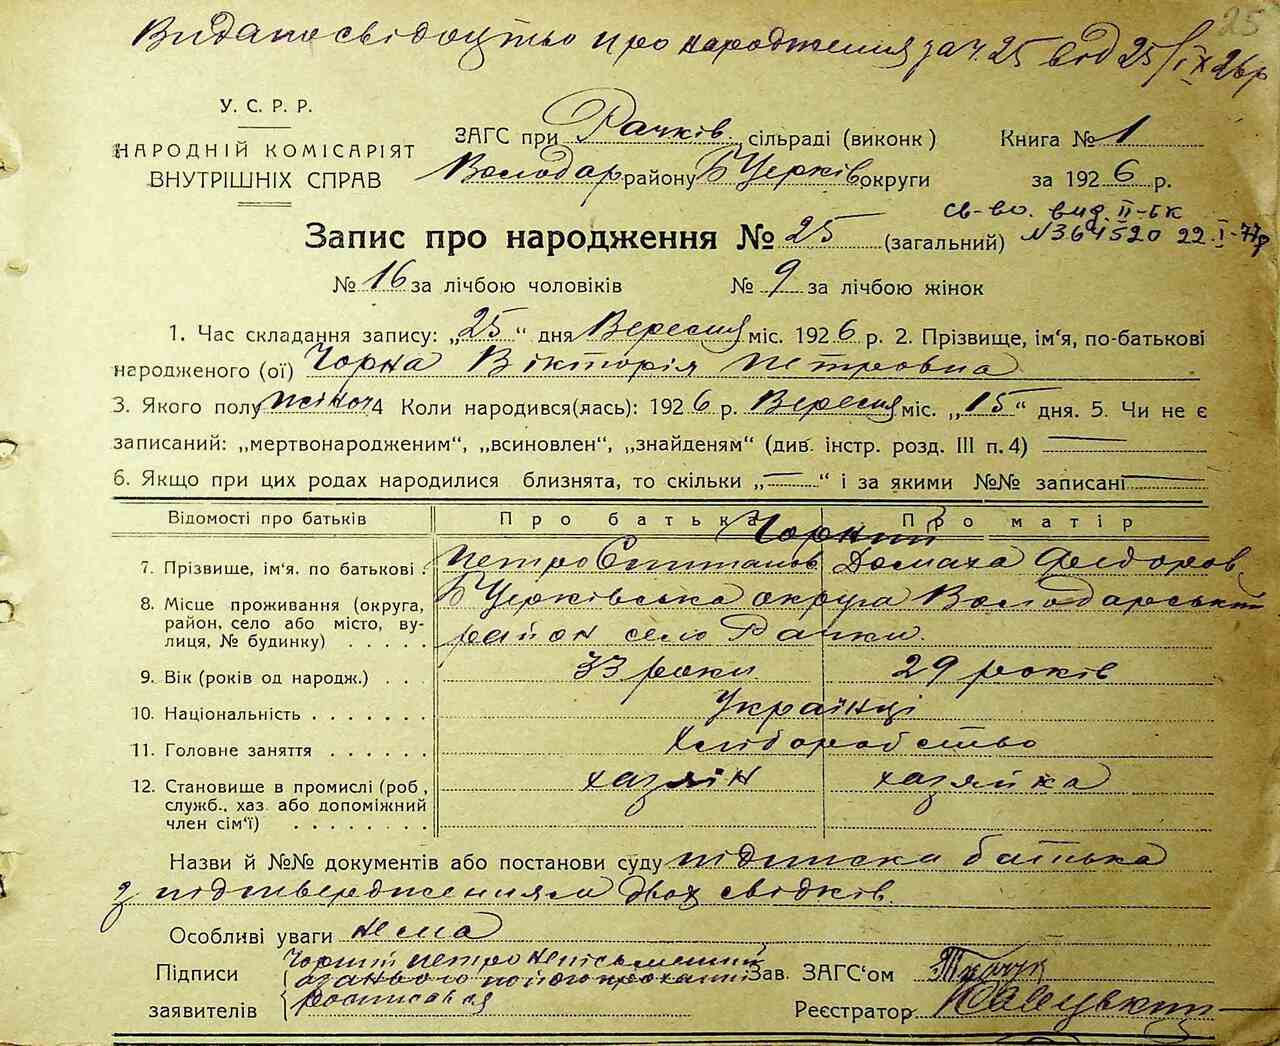 25
Видано свідоцтво про народження за ч. 25 від 25/IX 26р
У. С. Р. Р.
НАРОДНІЙ КОМІСАРІЯТ
ВНУТРІШНІХ СПРАВ
ЗАГС при Рачків. сільраді (виконк)
Володар району Б Церків округи
Книга № 1
за 1926 р.
св-во. вид. II-БК
N364520 22.I-77р
Запис про народження № 25 (загальний)
№ 16 за лічбою чоловіків № 9 за лічбою жінок
1. Час складання запису: „25“ дня Вересня міс. 1926 р. 2. Прізвище, ім'я, по-батькові
народженого (ої) Чорна Вікторія Петровна
3. Якого полу жіноч 4 Коли народився(лась): 1926 р. Вересня міс. „15“ дня. 5. Чи не є
записаний: „мертвонародженим“, „всиновлен“, „знайденям“ (див. інстр. розд. III п. 4)
6. Якщо при цих родах народилися близнята, то скільки „—“ і за якими №№ записані
Відомості про батьків Про батька Про матір
Чорний
7. Прізвище, ім'я. по батькові. Петро Степанов Домаха Федоров
8. Місце проживання (округа, Б Церківська округа Володарський
район, село або місто, ву-
лиця, № будинку) . . . . . район село Рачки.
9. Вік (років од народж.) . . . 33 роки 29 років
10. Національність . . . . . . . Українці
11. Головне заняття . . . . . . Хліборобство
12. Становище в промислі (роб, хазяїн хазяйка
служб., хаз. або допоміжний
член сім'ї) . . . . . . . .
Назви й №№ документів або постанови суду підписка батька
з підтвердженням двох свідків.
Особливі уваги нема
Підписи
заявителів
Чорний Петро неписьменний
а за нього по його проханні
росписався
Зав. ЗАГС'ом
Реєстратор